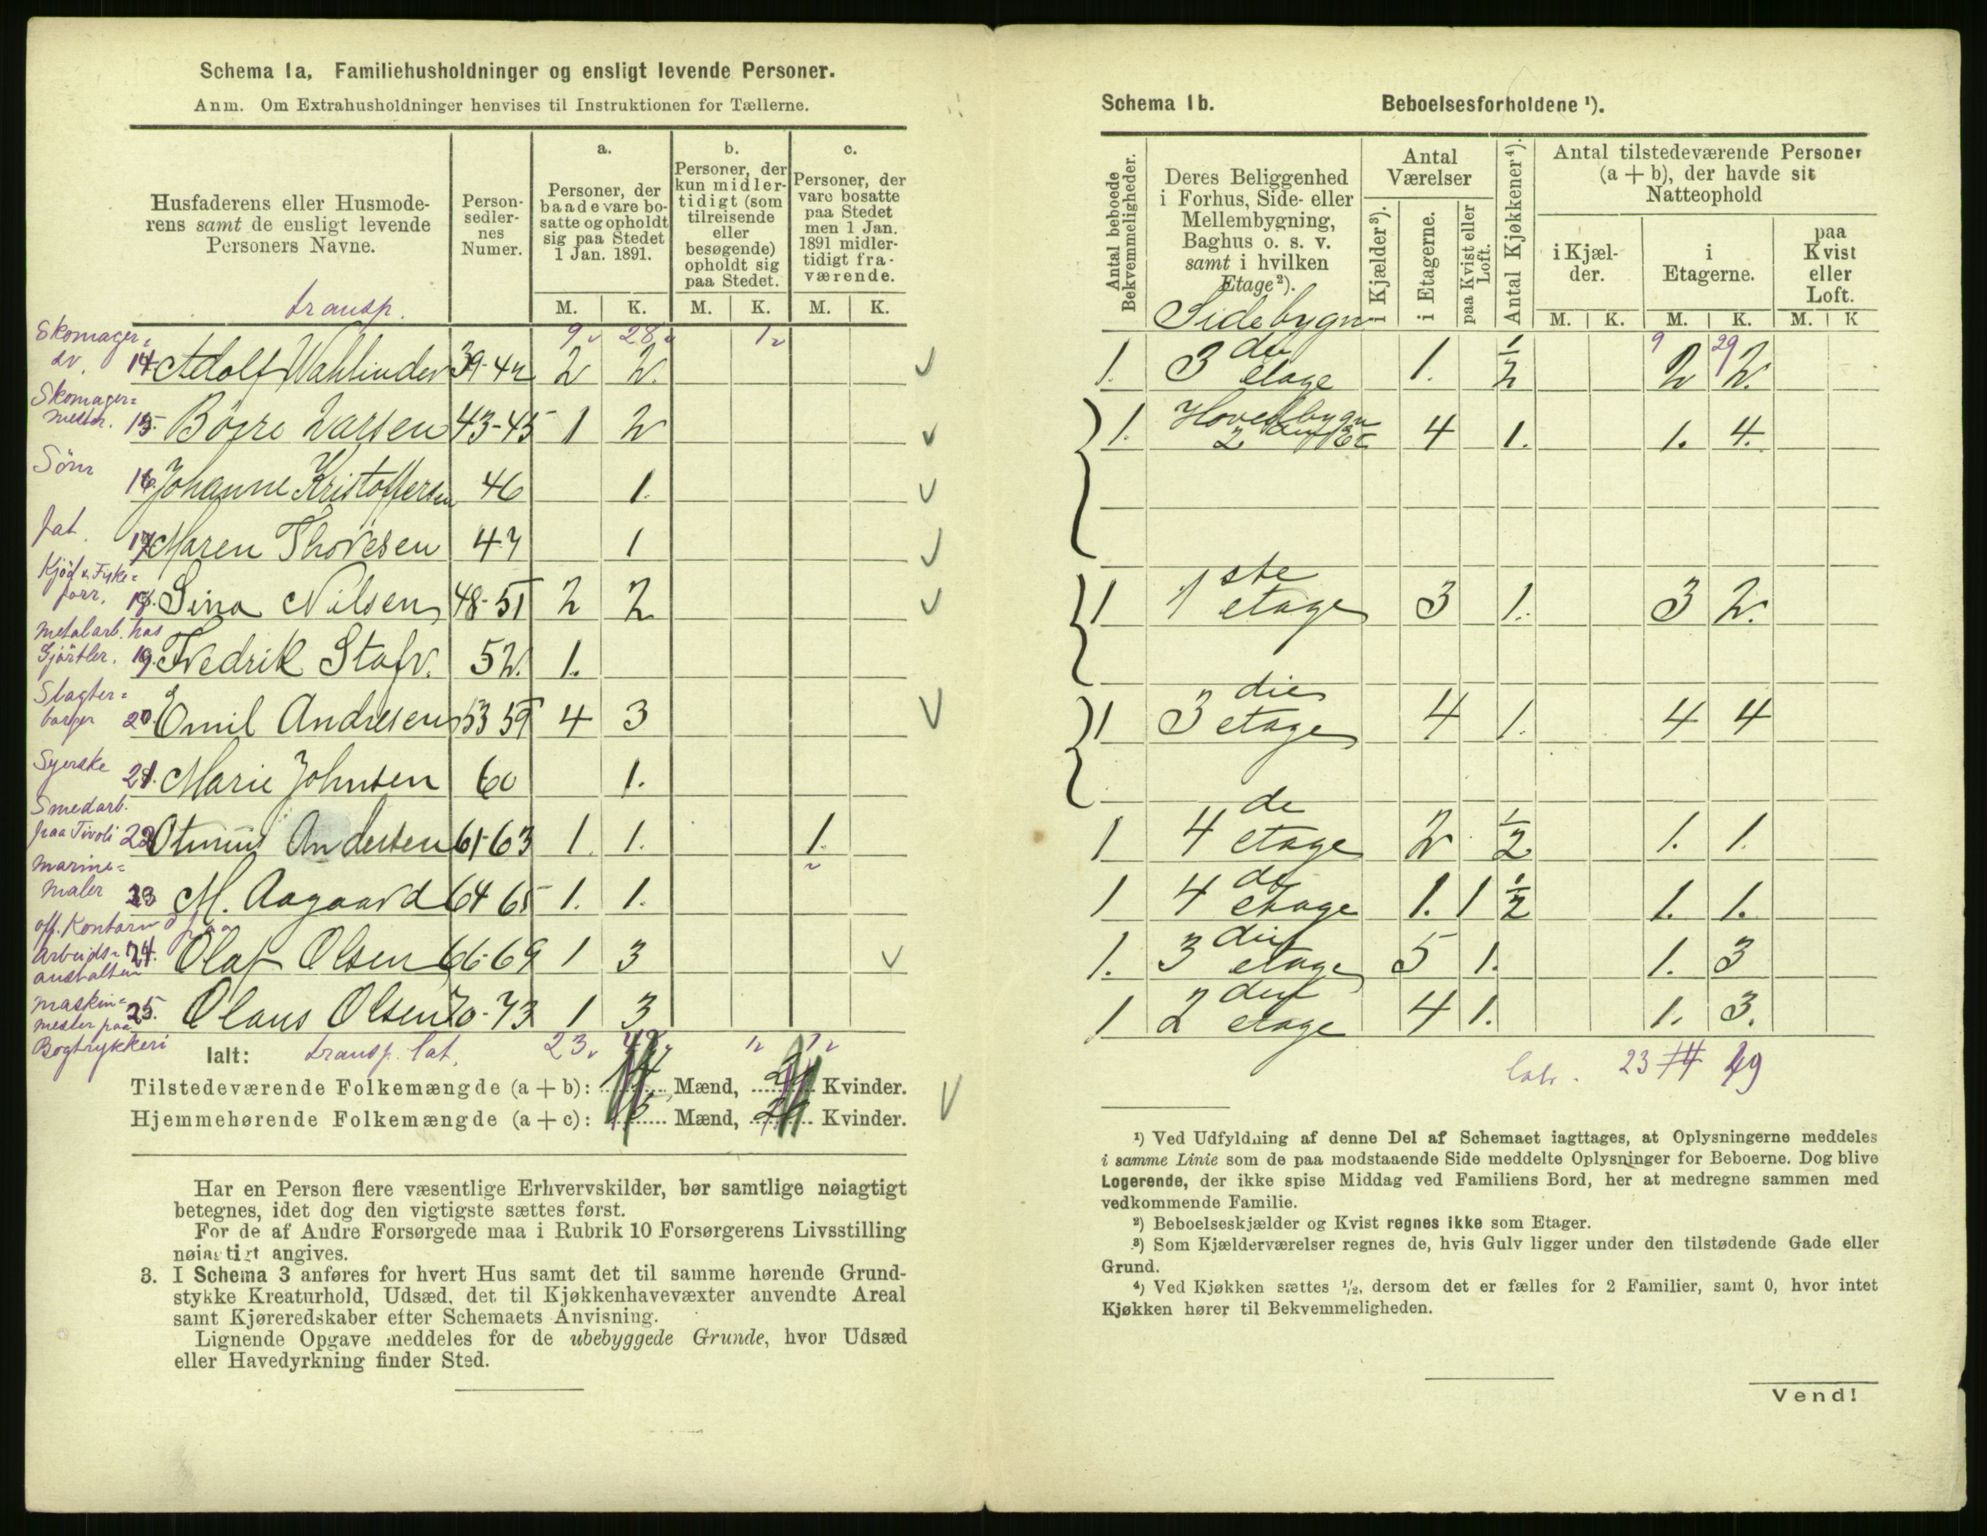 Schema 1a, Familiehusholdninger og ensligt levende Personer.
Anm. Om Extrahusholdninger henvises til Instruktionen for Tællerne.
Husfaderens eller Husmoderens samt de ensligt levende Personers Navne.
Personsedlernes Numer.
a. Personer, der baade vare bosatte og opholdt sig paa Stedet 1 Jan. 1891.
b. Personer, der kun midlertidigt (som tilreisende eller besøgende) opholdt sig paa Stedet.
c. Personer, der vare bosatte paa Stedet men 1 Jan. 1891 midlertidigt fraværende.
M. K. M. K. M. K.
transp. 9 28 1
Skomagersv. 14 Adolf Wahlinder 39-42 2 2.
Skomagermester. 15 Børre Larsen 43-45 1 2
Søm 16. Johanne Kristoffersen 46 1.
fat. 17 Maren Thovesen 47 1
Kjød & Fiskeforr. 18. Sina Nilsen 48-51 2 2
Metalarb. hos Gjørtler. 19. Fredrik Stafv. 52. 1.
Slagterborger 20. Emil Andresen 53 59 4 3
Syerske 21. Marie Johnsen 60 1.
Smedarb. paa Tivoli 22 Andersen 61-63 1. 1. 1.
Marinemaler 23 M. Aagaard 64 65 1. 1.
off. Kontorist paa Arbeidsanstalten 24. Olaf Olsen 66-69 1 3
Maskinmester paa Bogtrykkeri 25. Olaus Olsen 70-73 1 3
Ialt: transp. lat. 23 48 1 1
Tilstedeværende Folkemængde (a + b): Mænd, Kvinder.
Hjemmehørende Folkemængde (a + c): Mænd, Kvinder.
Har en Person flere væsentlige Erhvervskilder, bør samtlige nøiagtigt
betegnes, idet dog den vigtigste sættes først.
For de af Andre Forsørgede maa i Rubrik 10 Forsørgerens Livsstilling
nøiagtigt angives.
3. I Schema 3 anføres for hvert Hus samt det til samme hørende Grund-
stykke Kreaturhold, Udsæd, det til Kjøkkenhavevæxter anvendte Areal
samt Kjøreredskaber efter Schemaets Anvisning.
Lignende Opgave meddeles for de ubebyggede Grunde, hvor Udsæd
eller Havedyrkning finder Sted.
Schema 1b. Beboelsesforholdene ¹).
Antal beboede Bekvemmeligheder.
Deres Beliggenhed i Forhus, Side- eller Mellembygning, Baghus o. s. v. samt i hvilken Etage²).
Antal Værelser
i Kjælder³). i Etagerne. paa Kvist eller Loft.
Antal Kjøkkener⁴).
Antal tilstedeværende Personer (a + b), der havde sit Natteophold
i Kjælder. i Etagerne. paa Kvist eller Loft.
M. K. M. K. M. K
Sidebygn 9 29
1. 3die etage 1. ½ 2 2.
1. Hovedbygn 4 1. 1. 4.
1 1ste etage 3 1. 3 2.
1 3die etage 4 1. 4 4
1 4de etage 2 ½ 1. 1.
1 4de etage 1. 1 ½ 1. 1.
1. 3die etage 5 1. 1. 3
1 2den etage 4 1. 1. 3.
23 44 49
¹) Ved Udfyldning af denne Del af Schemaet iagttages, at Oplysningerne meddeles
i samme Linie som de paa modstaaende Side meddelte Oplysninger for Beboerne. Dog blive
Logerende, der ikke spise Middag ved Familiens Bord, her at medregne sammen med
vedkommende Familie.
²) Beboelseskjælder og Kvist regnes ikke som Etager.
³) Som Kjælderværelser regnes de, hvis Gulv ligger under den tilstødende Gade eller
Grund.
⁴) Ved Kjøkken sættes ½, dersom det er fælles for 2 Familier, samt 0, hvor intet
Kjøkken hører til Bekvemmeligheden.
Vend!